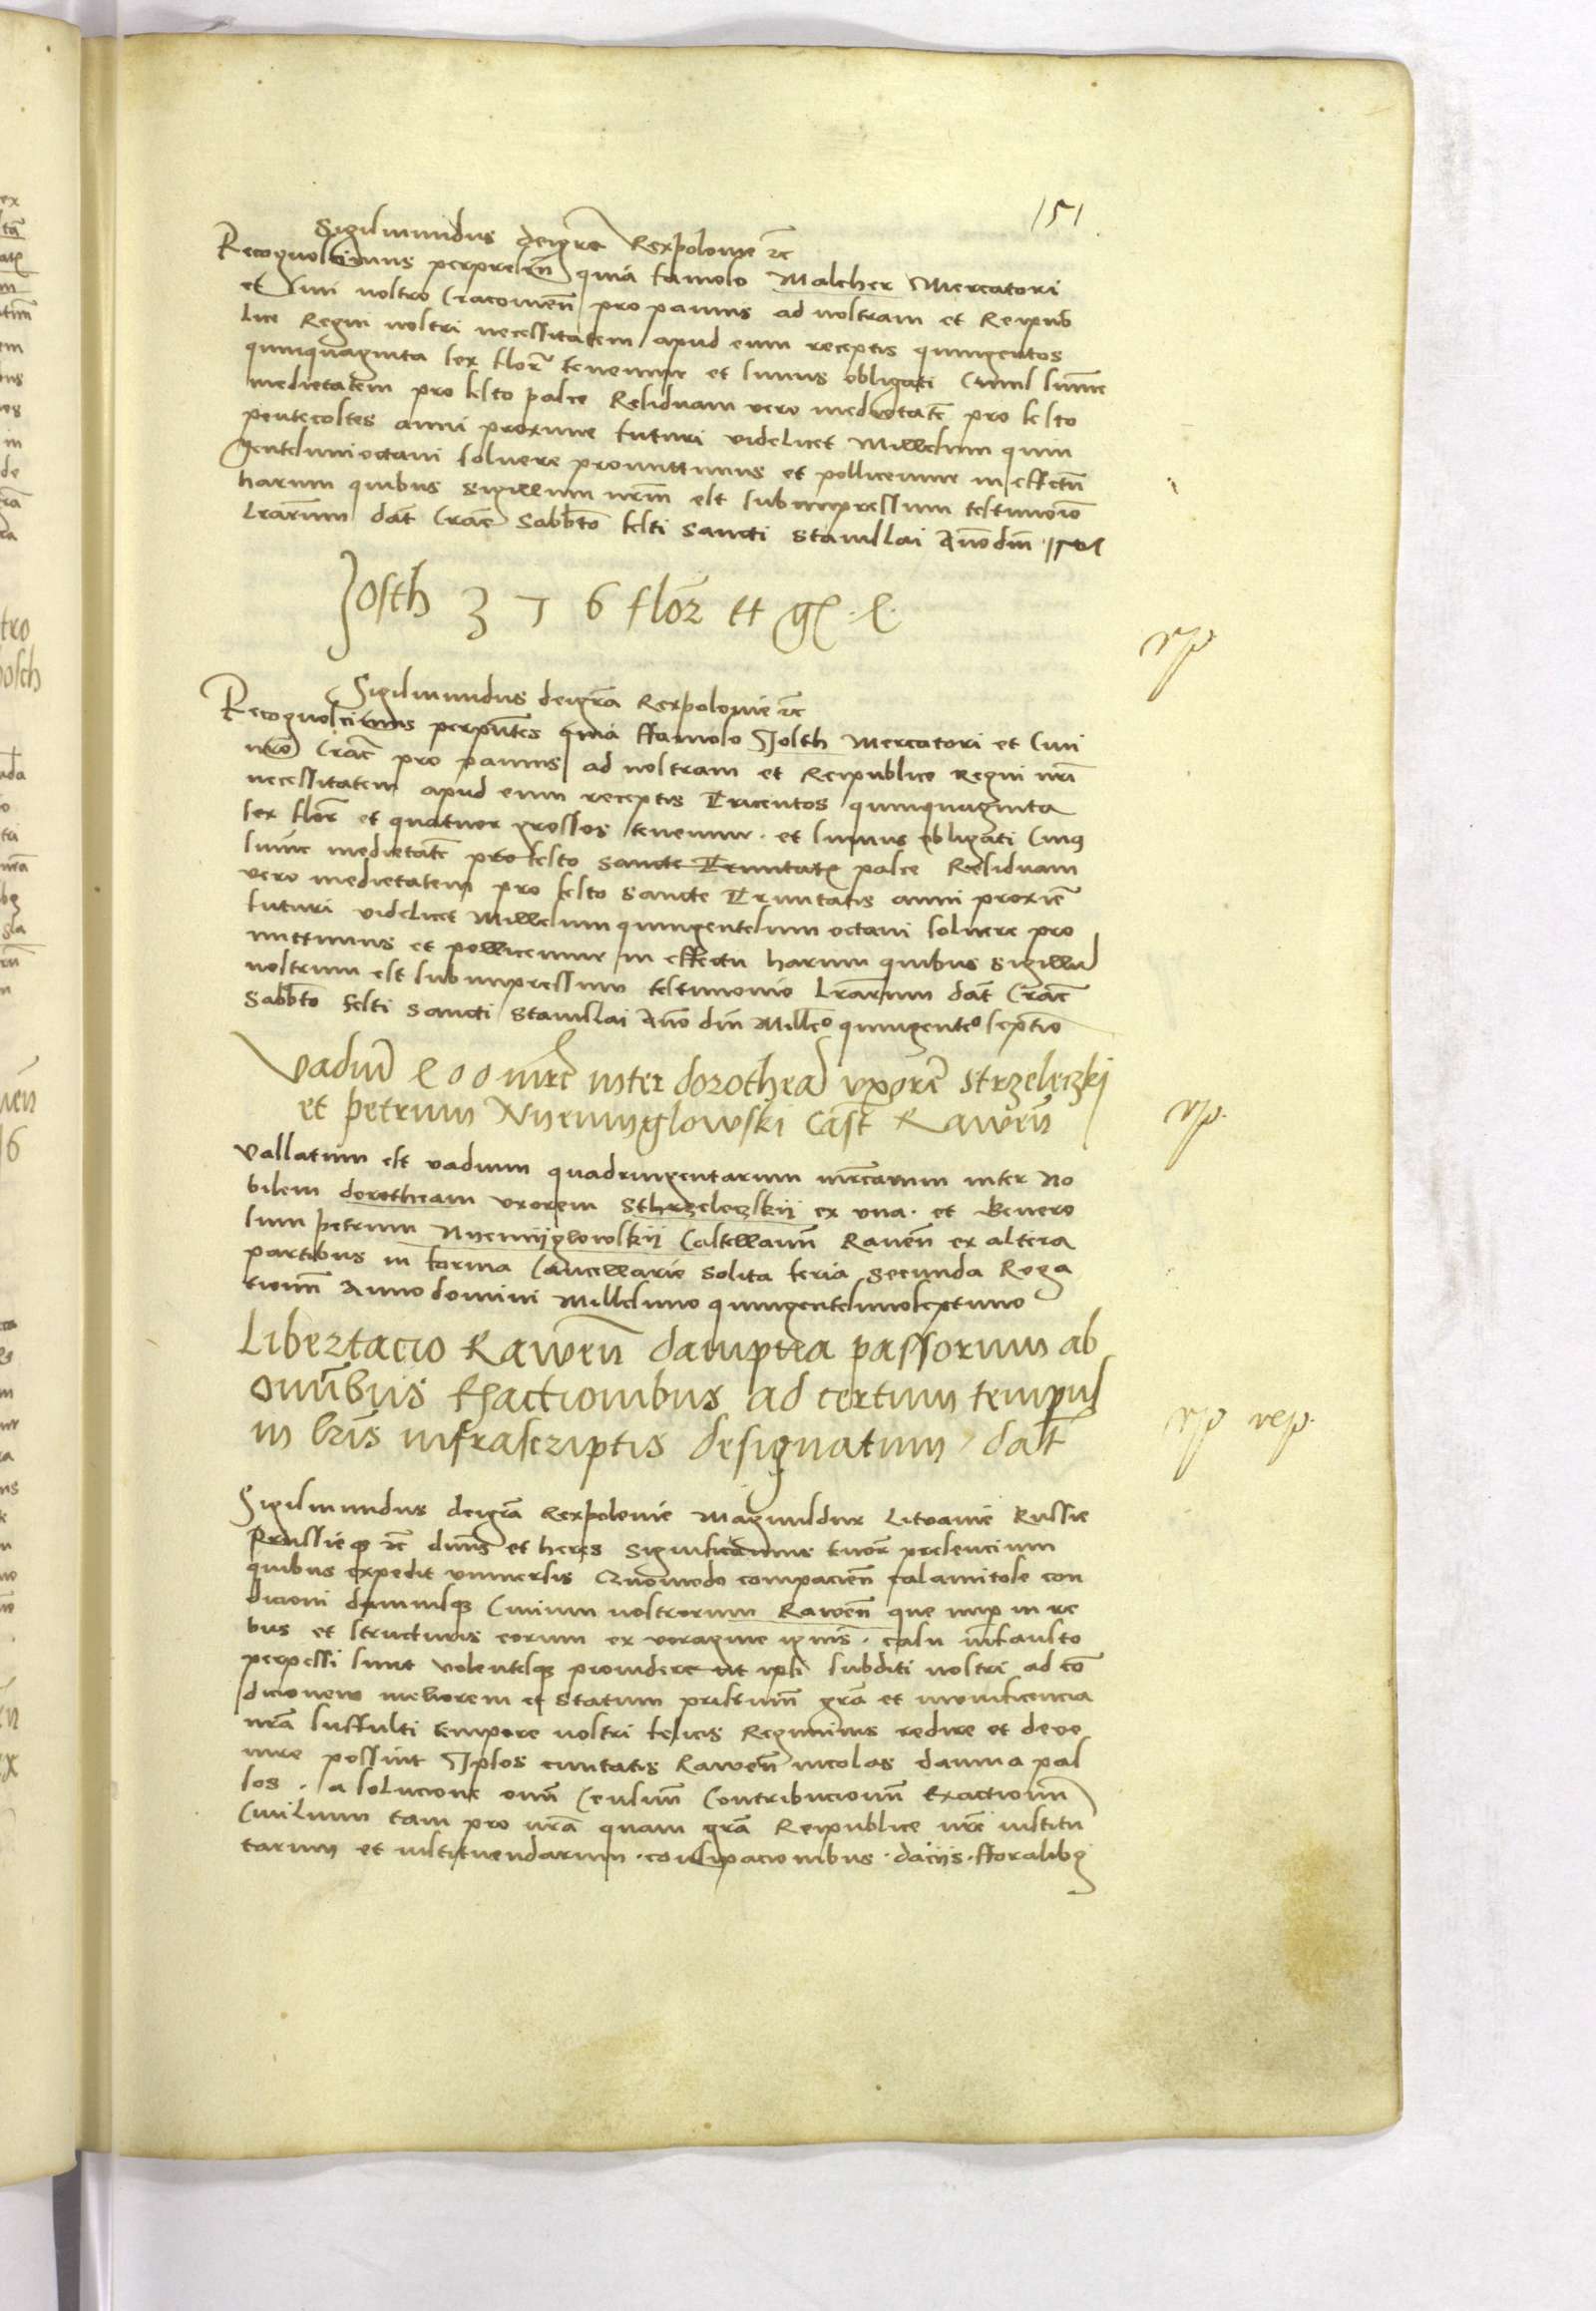 151
Sigismundus dei gra Rex polonie etc
Recognoscimus per presen quia famoso Malcher Mercatori
et Civi nostro Cracovien pro pannis ad nostram et Reipub
lice Regni nostri necessitatem apud eum receptis quingentos
quinquaginta sex flor tenemur et sumus obligati Cuius summe
medietatem pro festo pasce Residuam vero medietate pro festo
pentecostes anni proxime futuri videlicet Millesimi quin
gentesimi octavi solvere promittimus et pollicemur in effectu
harum quibus sigillum nrm est subimpressum testimonio
Lrarum dat Crac Sabbto festi sancti Stanislai Anno dni
Josth 3 5 6 flor 4 g
Sigismundus dei gra Rex polonie etc
Recognoscimus per pntes quia ffamoso Josth Mercatori et Civi
nro Crac pro pannis ad nostram et Reipublice Regni nri
necessitatem apud eum receptis Tricentos quinquaginta
sex flor et quatuor grossos tenemur et sumus obligati Cuius
summe medietate pro festo sancte Trinitatis pasce Residuam
vero medietatem pro festo sancte Trinitatis anni proxime
futuri videlicet Millesimi quingentesimi octavi solvere pro
mittimus et pollicemur in effectu harum quibus sigillu
nostrum est subimpressum testimonio Lrarum dat Crac
Sabbto festi sancti Stanislai Anno dni Millo quingento septimo
Vadiu 400 mrc inter dorothea uxore Strzeleczki
et petrum Nyemyglowski Cast Rawen
Vallatum est vadium quadringentarum mrcarum inter No
bilem dorotheam uxorem Sthrzeleczskij ex una et Genero
sum petrum Nyemijglowskij Castellanum Raven ex altera
partibus in forma Cancellarie solita feria secunda Roga
tionum Anno domini Millesimo quingentesimo septimo
Libertacio Rawen dampna passorum ab
omnibus Exactionibus ad certum tempus
in lris infrascriptis designatum dat
Sigismundus dei gra Rex polonie Magnus dux Litvanie Russie
Prussieque etc dnus et heres Significamus tenore presencium
quibus expedit universis Quomodo compacien calamitose con
dicioni damnisque Civium nostrorum Rawen que nup in re
bus et structuris eorum ex voragine ignis casu infausto
perpessi sunt Volentesque providere ut ipsi subditi nostri ad co
dicionem meliorem et statum pristinum gra et munificencia
nra suffulti tempore nostri felicis Regiminis redire et deve
nire possint Ipsos civitatis Rawen incolas damna pas
sos a solucione omn Censuum Contribucionum Exactionum
Civilium tam pro nra quam gra Reipublice nre institu
tarum et instituendarum contribucionibus daciis fforalibus